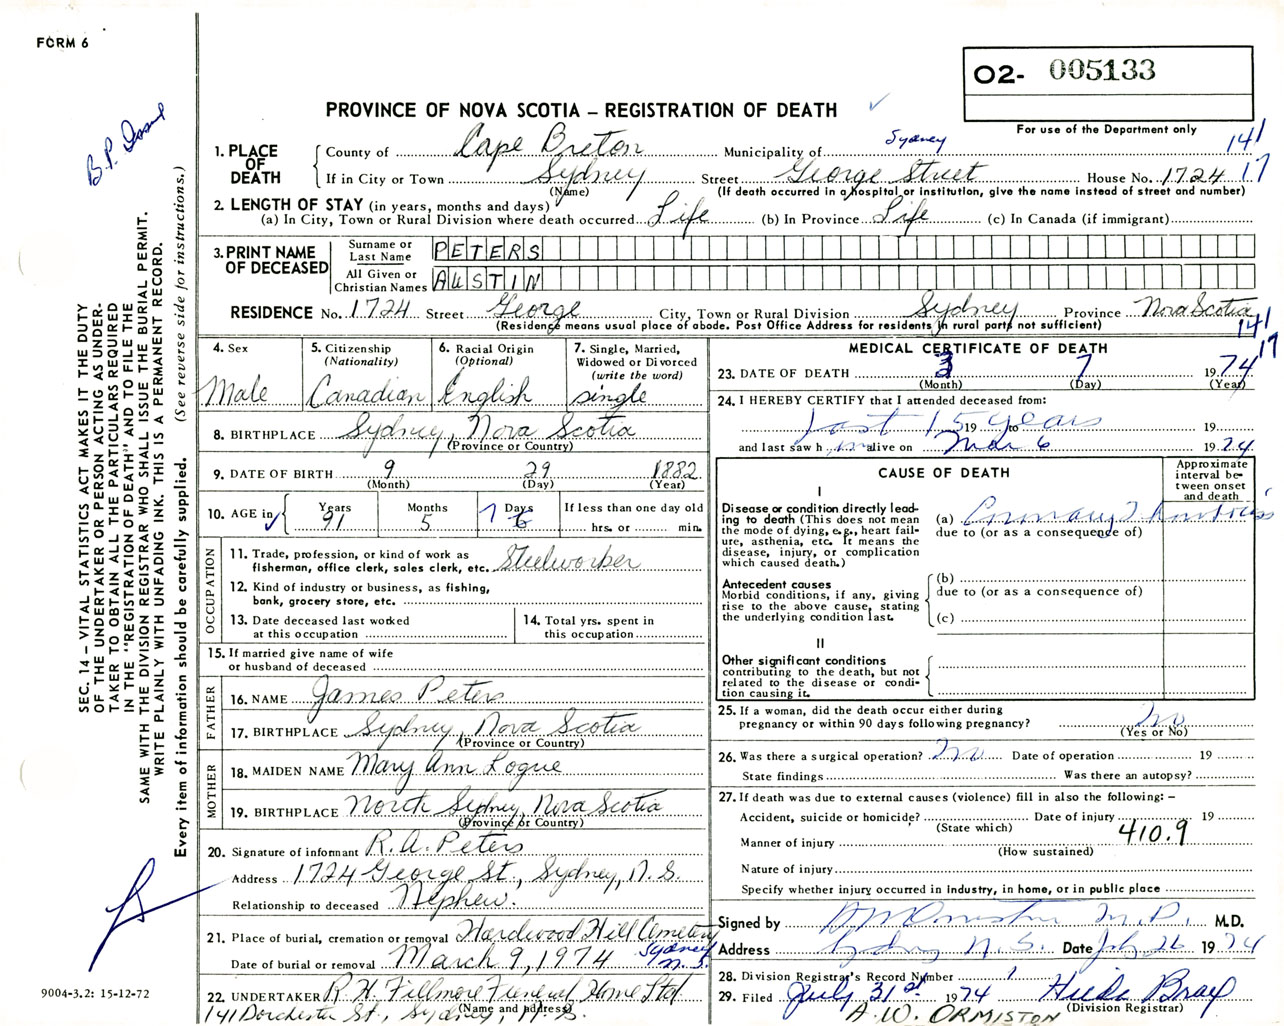 FORM 6
O2- 005133
PROVINCE OF NOVA SCOTIA – REGISTRATION OF DEATH
For use of the Department only
B.P.
SEC. 14 – VITAL STATISTICS ACT MAKES IT THE DUTY
OF THE UNDERTAKER OR PERSON ACTING AS UNDER-
TAKER TO OBTAIN ALL THE PARTICULARS REQUIRED
IN THE "REGISTRATION OF DEATH" AND TO FILE THE
SAME WITH THE DIVISION REGISTRAR WHO SHALL ISSUE THE BURIAL PERMIT.
WRITE PLAINLY WITH UNFADING INK. THIS IS A PERMANENT RECORD.
Every item of information should be carefully supplied. (See reverse side for instructions.)
1. PLACE OF DEATH
County of Cape Breton Municipality of Sydney 141
If in City or Town Sydney Street George Street House No. 1724 17
(Name) (If death occurred in a hospital or institution, give the name instead of street and number)
2. LENGTH OF STAY (in years, months and days)
(a) In City, Town or Rural Division where death occurred Life (b) In Province Life (c) In Canada (if immigrant)
3. PRINT NAME OF DECEASED
Surname or Last Name PETERS
All Given or Christian Names AUSTIN
RESIDENCE No. 1724 Street George City, Town or Rural Division Sydney Province Nova Scotia
(Residence means usual place of abode. Post Office Address for residents in rural parts not sufficient) 141
17
4. Sex 5. Citizenship (Nationality) 6. Racial Origin (Optional) 7. Single, Married, Widowed or Divorced (write the word)
Male Canadian English single
8. BIRTHPLACE Sydney, Nova Scotia
(Province or Country)
9. DATE OF BIRTH 9 29 1882
(Month) (Day) (Year)
10. AGE in Years 91 Months 5 Days 7 6 If less than one day old hrs. or min.
OCCUPATION
11. Trade, profession, or kind of work as
fisherman, office clerk, sales clerk, etc. Steelworker
12. Kind of industry or business, as fishing,
bank, grocery store, etc.
13. Date deceased last worked at this occupation
14. Total yrs. spent in this occupation
15. If married give name of wife
or husband of deceased
FATHER
16. NAME James Peters
17. BIRTHPLACE Sydney, Nova Scotia
(Province or Country)
MOTHER
18. MAIDEN NAME Mary Ann Logue
19. BIRTHPLACE North Sydney, Nova Scotia
(Province or Country)
20. Signature of informant R.A. Peters
Address 1724 George St., Sydney, N.S.
Relationship to deceased Nephew.
21. Place of burial, cremation or removal Hardwood Hill Cemetery
Sydney N.S.
Date of burial or removal March 9, 1974
22. UNDERTAKER R.H. Fillmore Funeral Home Ltd
(Name and address)
141 Dorchester St., Sydney, N.S.
MEDICAL CERTIFICATE OF DEATH
23. DATE OF DEATH 3 7 1974
(Month) (Day) (Year)
24. I HEREBY CERTIFY that I attended deceased from:
last 15 19 to years 19
and last saw h im alive on Mar 6 1974
CAUSE OF DEATH
Approximate interval be-tween onset and death
I
Disease or condition directly lead-
ing to death (This does not mean
the mode of dying, e.g., heart fail-
ure, asthenia, etc. It means the
disease, injury, or complication
which caused death.)
(a) Coronary Thrombosis
due to (or as a consequence of)
Antecedent causes
Morbid conditions, if any, giving
rise to the above cause, stating
the underlying condition last.
(b)
due to (or as a consequence of)
(c)
II
Other significant conditions
contributing to the death, but not
related to the disease or condi-
tion causing it.
25. If a woman, did the death occur either during
pregnancy or within 90 days following pregnancy? no
(Yes or No)
26. Was there a surgical operation? no Date of operation 19
State findings Was there an autopsy?
27. If death was due to external causes (violence) fill in also the following: –
Accident, suicide or homicide? Date of injury 19
(State which)
Manner of injury 410.9
(How sustained)
Nature of injury
Specify whether injury occurred in industry, in home, or in public place
Signed by A W Ormiston M.D. M.D.
Address Sydney N.S. Date July 26 1974
28. Division Registrar's Record Number 1
29. Filed July 31st 1974 Hilda
(Division Registrar)
A.W. ORMISTON
9004-3.2: 15-12-72